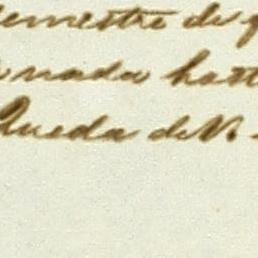 semestre de
nada hast
Queda de V.